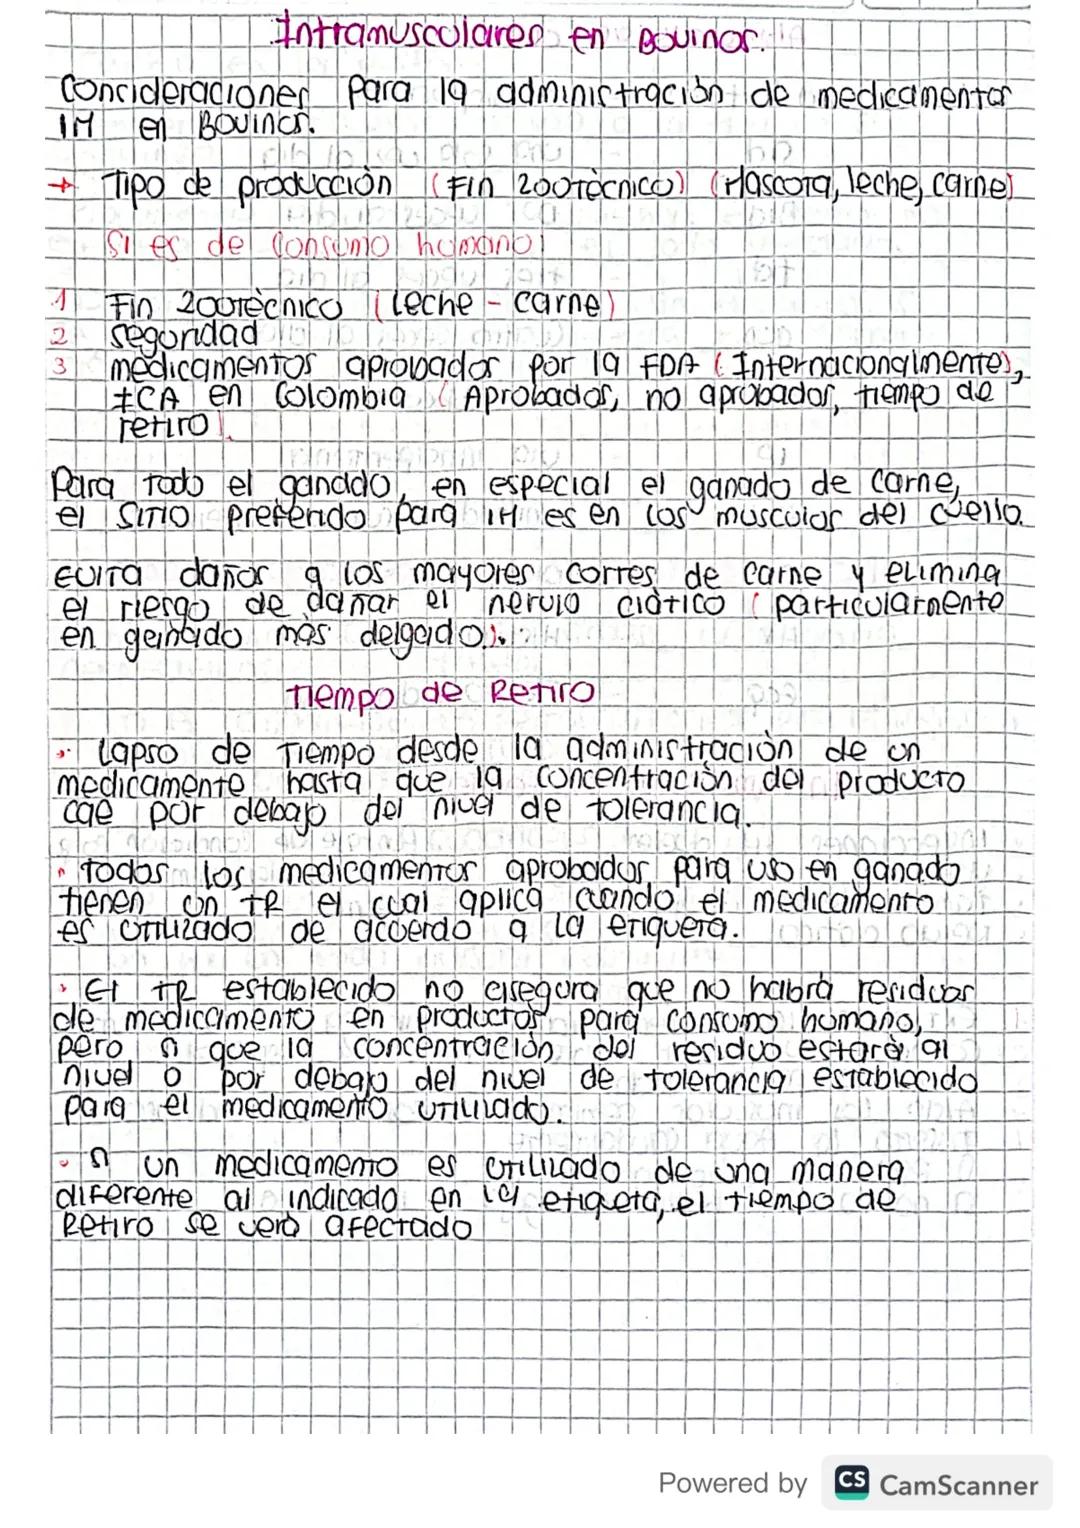 Intramusculares en Bovinos.
Consideraciones para la administración de medicamentos
IM en Bovinos.
→ Tipo de producción (Fin zootècnico) (Mascota, leche, carne)
Si es de consumo humano:
1 Fin zootècnico (leche - carne)
2 seguridad
3 medicamentos aprobados por la FDA (Internacionalmente),
ICA en Colombia (Aprobados, no aprobados, tiempo de
retiro).
Para todo el ganado, en especial el ganado de carne,
el sitio preferido para IM es en los musculos del cuello.
Evita daños a los mayores cortes de carne y elimina
el riesgo de dañar el nervio ciàtico (particularmente
en ganado màs delgado).
Tiempo de Retiro
· Lapso de tiempo desde la administraciòn de un
medicamente hasta que la concentraciòn del producto
cae por debajo del nivel de tolerancia.
· Todos los medicamentos aprobados para uso en ganado
tienen un TR el cual aplica cuando el medicamento
es utilizado de acuerdo a la etiqueta.
· El TR establecido no asegura que no habrà residuos
de medicamento en productos para consumo humano,
pero si que la concentraciòn del residuo estarà al
nivel o por debajo del nivel de tolerancia establecido
para el medicamento utilizado.
· Si un medicamento es utilizado de una manera
diferente al indicado en la etiqueta, el tiempo de
Retiro se verà afectado
Powered by CS CamScanner